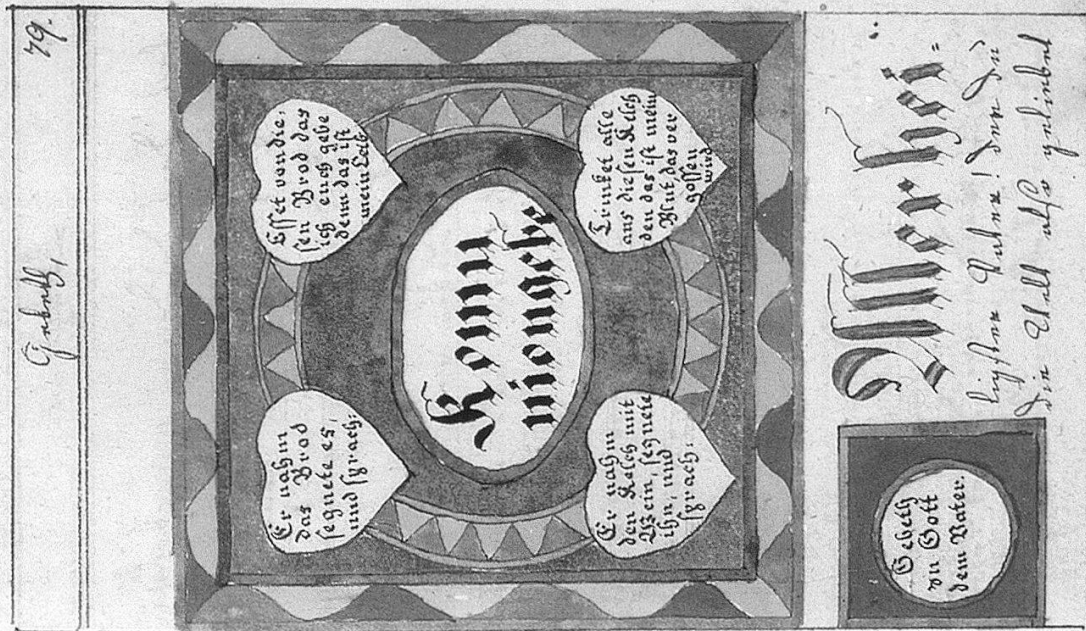 79.
Gebeth,
Er nahm
das Brod
segnete es,
und sprach:
Esset von die,
sen Brod das
ich euch gebe
denn das ist
mein Leib
Kommu
niongebe
Er nahm
den Kelch mit
Wein, segnete
ihn, und
sprach:
Trinket alle
aus diesen Kelch
den das ist mein
Blut, das ver
gossen
wird
Gebeth
zu Gott
dem Vater.
Allerhei=
ligster Vatter! der du
die Welt also geliebet